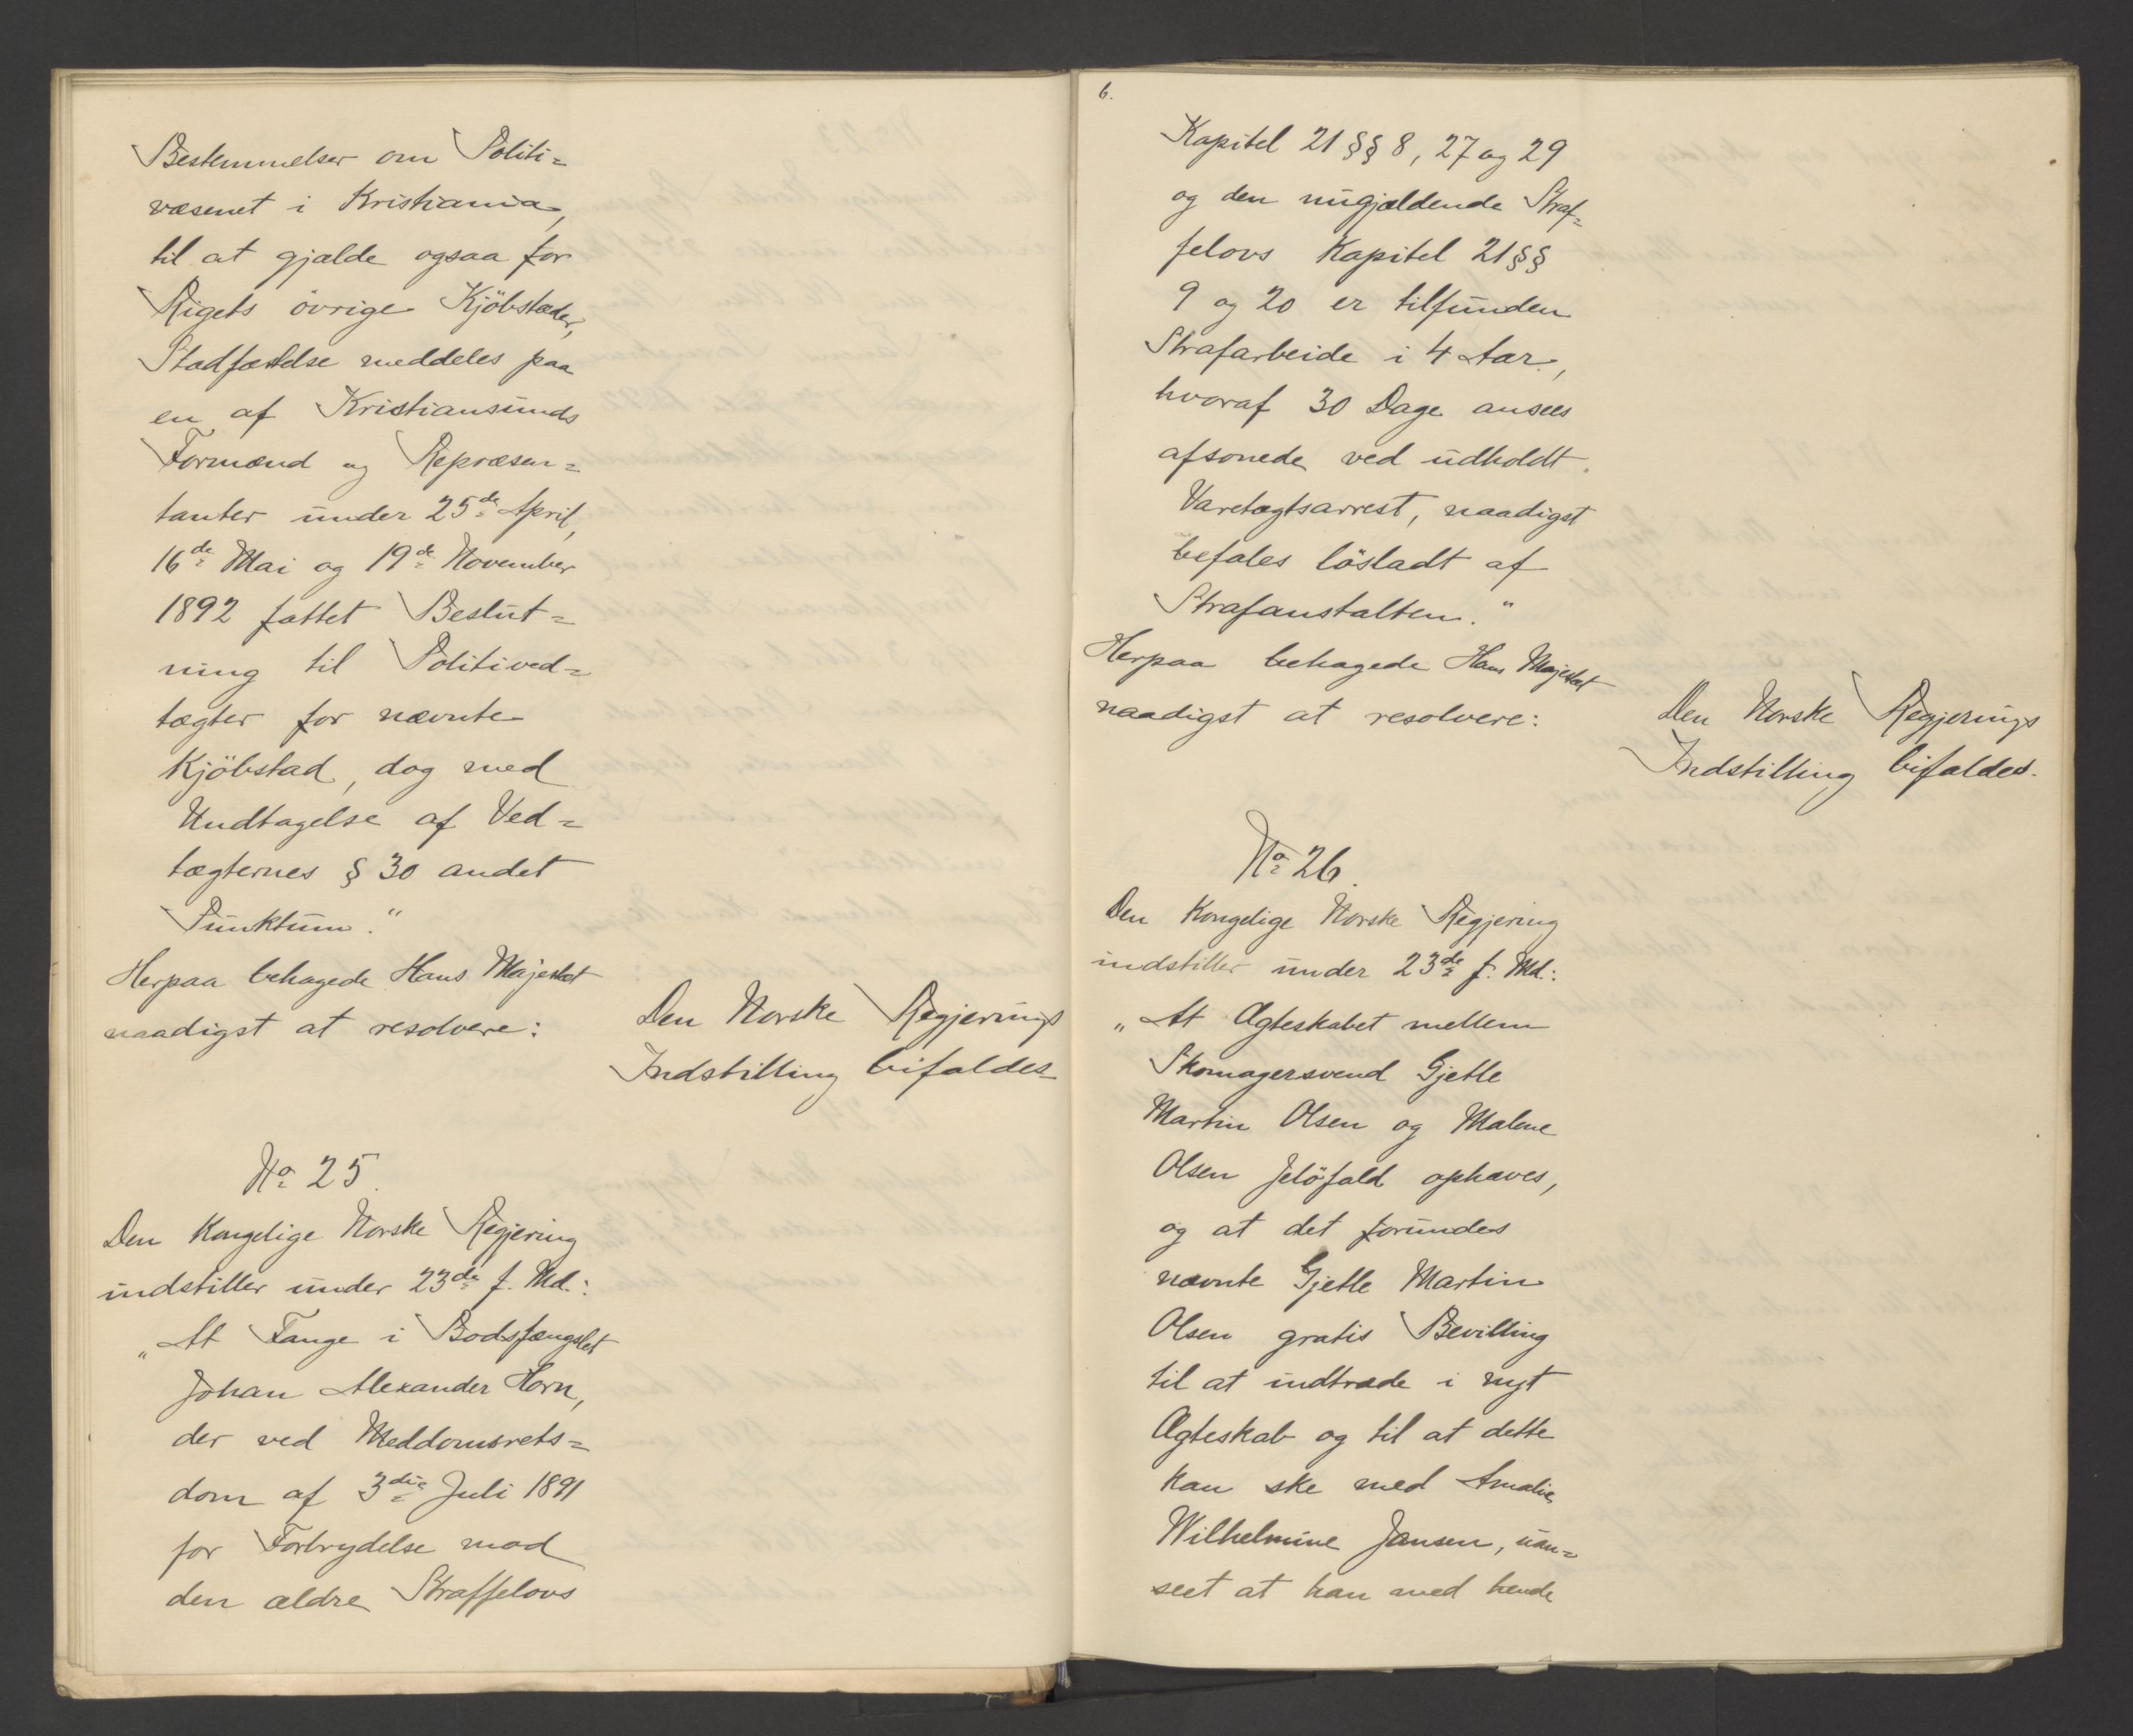 Bestemmelser om Politi=
væsenet i Kristiania,
til at gjælde ogsaa for
Rigets övrige Kjöbstæder,
Stadfæstelse meddeles paa
en af Kristiansunds
Formænd og Repræsen=
tanter under 25de April,
16de Mai og 19de November
1892 fattet Beslut=
ning til Politived=
tægter for nævnte
Kjöbstad, dog med
Undtagelse af Ved=
tægternes § 30 andet
Punktum."
Herpaa behagede Hans Majestæt
naadigst at resolvere:
Den Norske Regjerings
Indstilling bifaldes
No 25.
Den Kongelige Norske Regjering
indstiller under 23de f. Md.:
„At Fange i Bodsfængslet
Johan Alexander Horn,
der ved Meddomsrets=
dom af 3die Juli 1891
for Forbrydelse mod
den ældre Straffelovs
6.
Kapitel 21 §§ 8, 27 og 29
og den nugjældende Straf=
felovs Kapitel 21 §§
9 og 20 er tilfunden
Strafarbeide i 4 Aar,
hvoraf 30 Dage ansees
afsonede ved udholdt
Varetægtsarrest, naadigst
befales lösladt af
Strafanstalten."
Herpaa behagede Hans Majestæt
naadigst at resolvere:
Den Norske Regjerings
Indstilling bifaldes.
No 26.
Den Kongelige Norske Regjering
indstiller under 23de f. Md.:
„At Ægteskabet mellem
Skomagersvend Gjetle
Martin Olsen og Malene
Olsen Jelöfald ophæves,
og at det forundes
nævnte Gjetle Martin
Olsen gratis Bevilling
til at indtræde i nyt
Ægteskab og til at dette
kan ske med Amalie
Wilhelmine Jansen, uan=
seet at han med hende